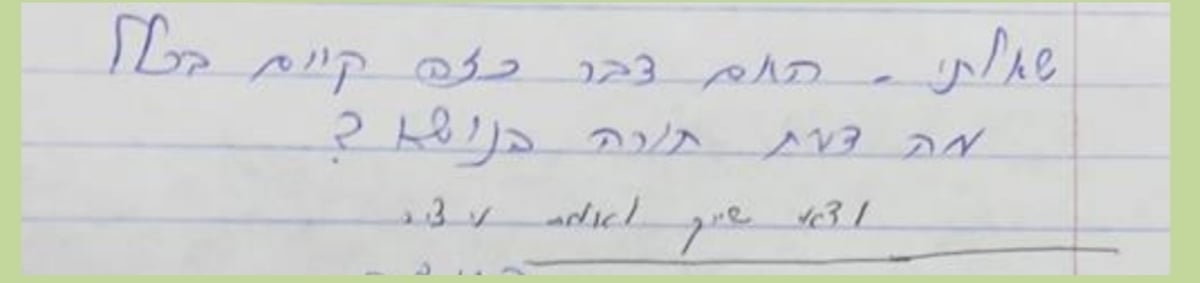 שאלתי - האם דבר כזה קיים בכלל
מה דעת תורה בנושא ?
שייך